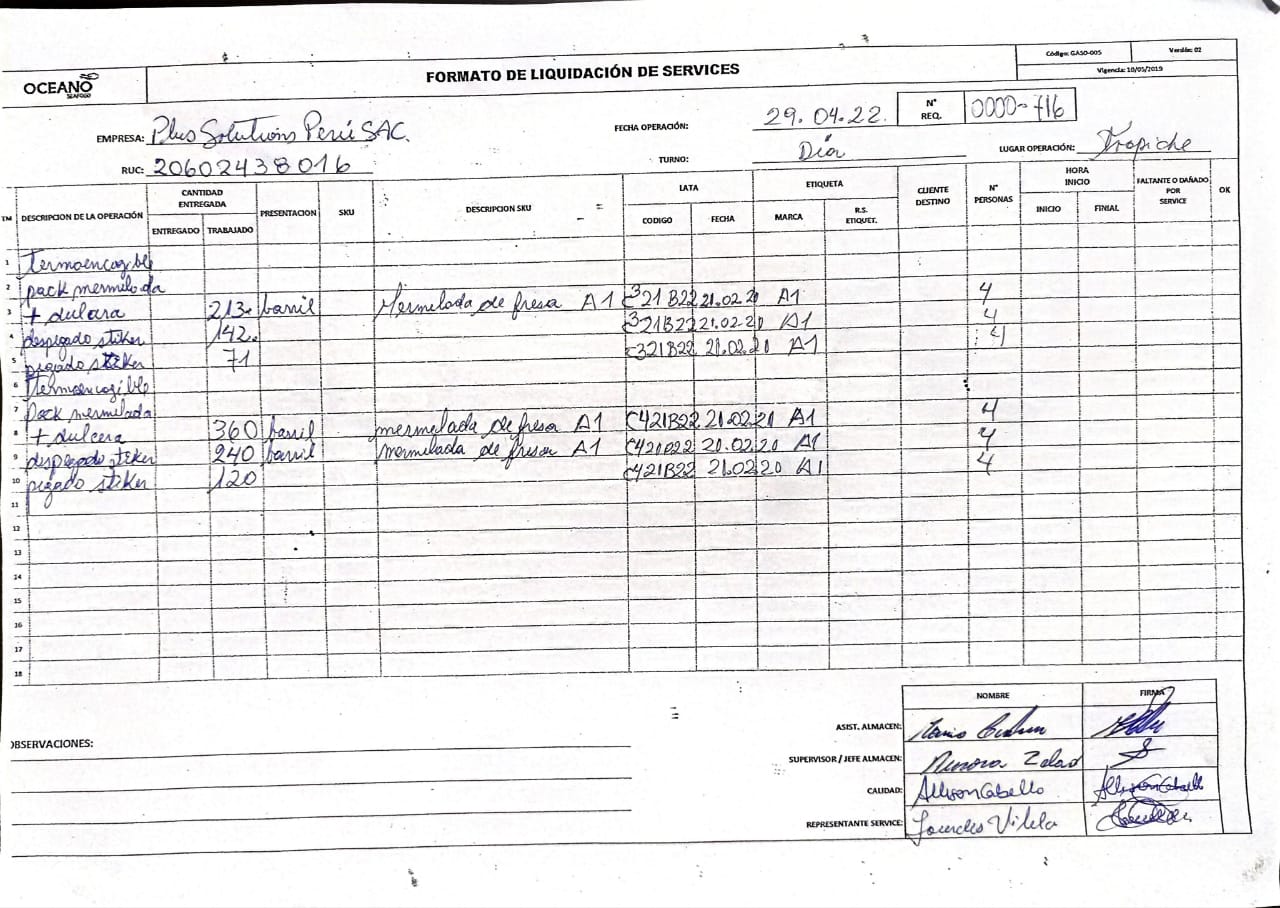 OCEANO
SEAFOOD
FORMATO DE LIQUIDACIÓN DE SERVICES
Código: GASO-005
Versión: 02
Vigencia: 10/05/2019
EMPRESA: Plus Solutions Perú SAC.
FECHA OPERACIÓN: 29.04.22.
N° REQ. 0000-716
RUC: 20602438016
TURNO: Día
LUGAR OPERACIÓN: Trapiche
TM DESCRIPCION DE LA OPERACIÓN CANTIDAD ENTREGADA PRESENTACION SKU DESCRIPCION SKU LATA ETIQUETA CLIENTE DESTINO N° PERSONAS HORA INICIO FALTANTE O DAÑADO POR SERVICE OK
ENTREGADO TRABAJADO CODIGO FECHA MARCA R.S. ETIQUET. INICIO FINIAL
1 termoencogible
2 pack mermelada
3 + dulcera 213. barril Mermelada de fresa A1 C321B22 21.02.20 A1 4
4 despegado stiker 142. C321B22 21.02.20 A1 4
5 pegado stiker 71 C321B22 21.02.20 A1 4
6 termoencogible
7 Pack mermelada
8 + dulcera 360 barril mermelada de fresa A1 C421B22 21.02.20 A1 4
9 despegado stiker 240 barril mermelada de fresa A1 C421B22 21.02.20 A1 4
10 pegado stiker 120 C421B22 21.02.20 A1 4
11
12
13
14
15
16
17
18
NOMBRE FIRMA
OBSERVACIONES:
ASIST. ALMACEN:
SUPERVISOR / JEFE ALMACEN:
CALIDAD: Allison Cabello
REPRESENTANTE SERVICE: Lourdes Vilela